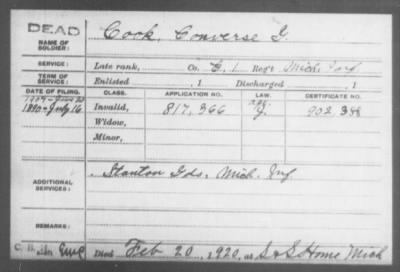 DEAD
NAME OF SOLDIER: Cook, Converse G.
SERVICE: Late rank, Co. G, 1 Reg't Mich. Inf.
TERM OF SERVICE: Enlisted , 1 Discharged , 1
DATE OF FILING. CLASS. APPLICATION NO. LAW. CERTIFICATE NO.
1890-July 16 Invalid, 817,366 J. 902 388
Widow,
Minor,
ADDITIONAL SERVICES: Stanton Gds. Mich. Inf
REMARKS:
C. B. Died Feb 20, 1920, at S&S Home Mich